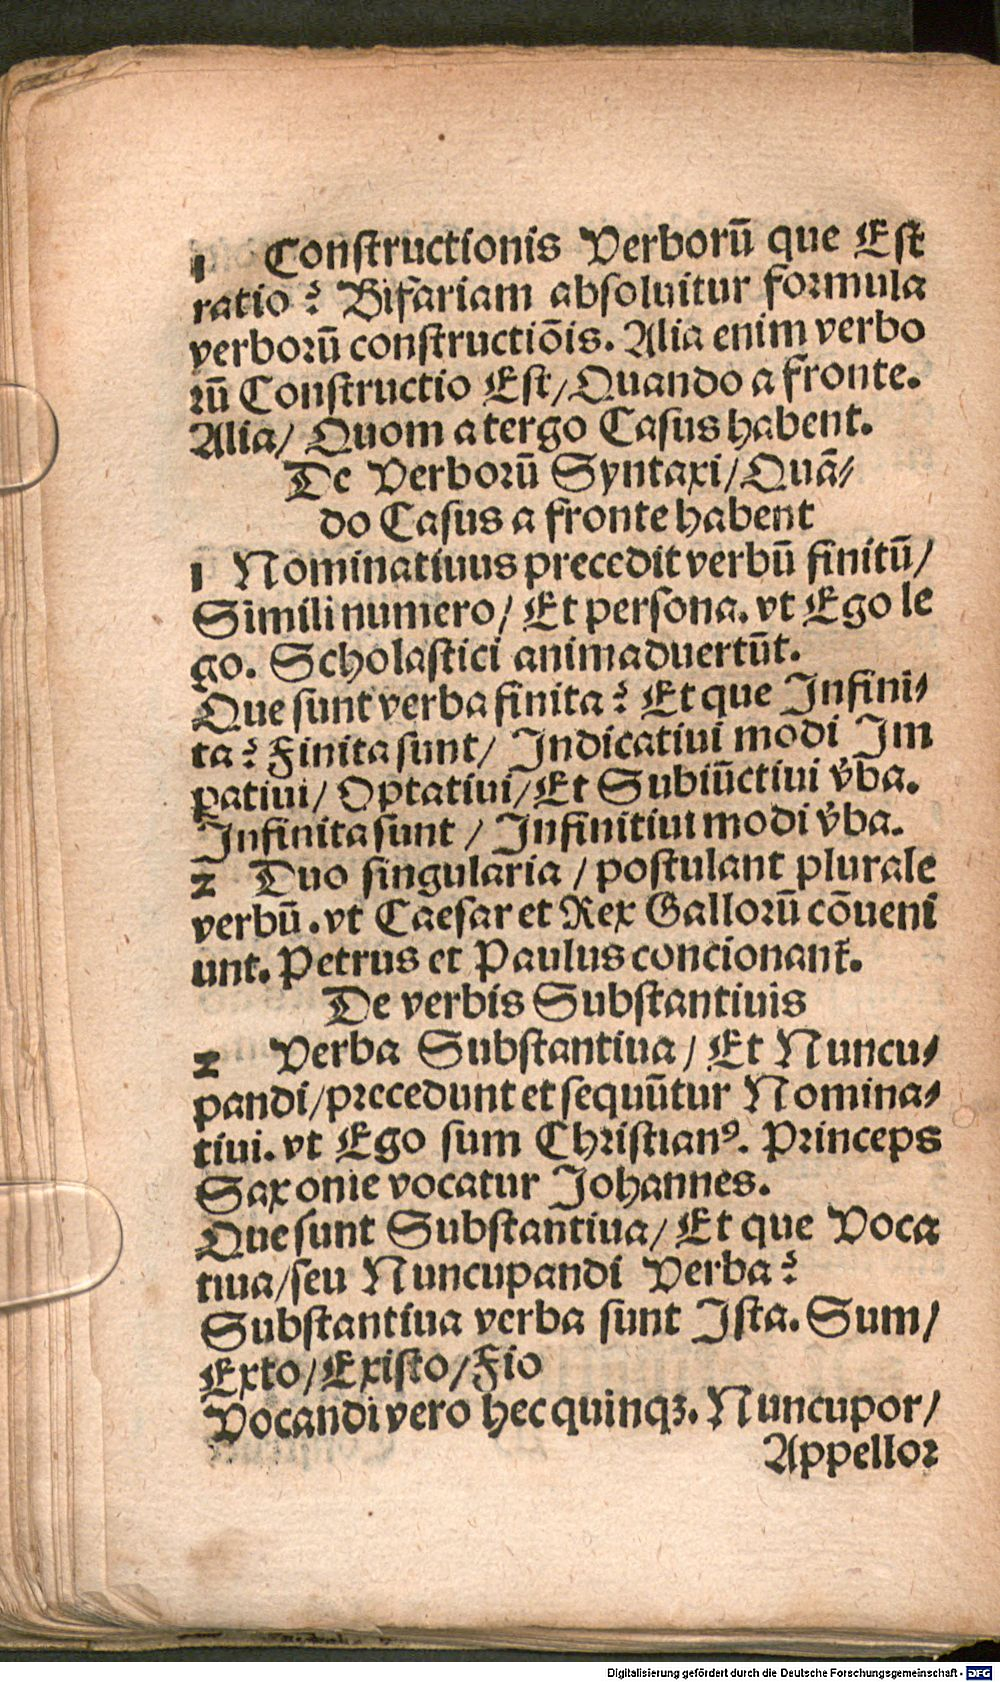 1 Constructionis Verborū que Est
ratio? Bifariam absoluitur formula
verborū constructiōis. Alia enim verbo
rū Constructio Est/ Quando a fronte.
Alia/ Quom a tergo Casus habent.
De Verborū Syntaxi/ Quā-
do Casus a fronte habent
1 Nominatiuus precedit verbū finitū/
Simili numero/ Et persona. vt Ego le
go. Scholastici animaduertūt.
Que sunt verba finita? Et que Infini-
ta? Finita sunt/ Indicatiui modi Im
patiui/ Optatiui/ Et Subiūctiui v̄ba.
Infinita sunt / Infinitiui modi v̄ba.
2 Duo singularia / postulant plurale
verbū. vt Caesar et Rex Gallorū cōueni
unt. Petrus et Paulus concionant᷑.
De verbis Substantiuis
2 Verba Substantiua/ Et Nuncu-
pandi/ precedunt et sequūtur Nomina-
tiui. vt Ego sum Christianꝰ. Princeps
Saxonie vocatur Johannes.
Que sunt Substantiua/ Et que Voca
tiua/ seu Nuncupandi Verba?
Substantiua verba sunt Ista. Sum/
Exto/ Existo/ Fio
Vocandi vero hec quinqꝫ. Nuncupor/
Appellor
Digitalisierung gefördert durch die Deutsche Forschungsgemeinschaft - DFG